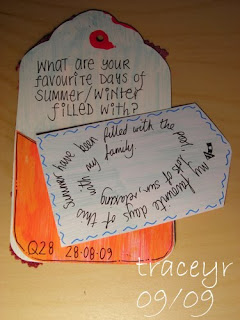 WHAT ARE YOUR
FAVOURITE DAYS OF
SUMMER/WINTER
FILLED WITH?
My favourite days of this
summer have been
filled with the pool,
lots of sun, relaxing
with my
family.
Q28 28-08-09
traceyr
09/09